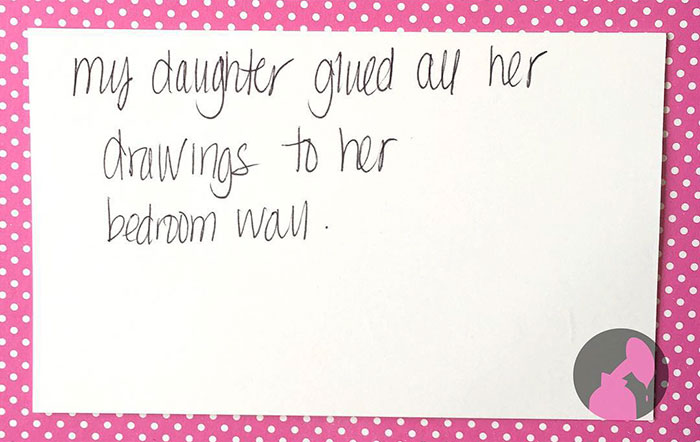 my daughter glued all her
drawings to her
bedroom wall.